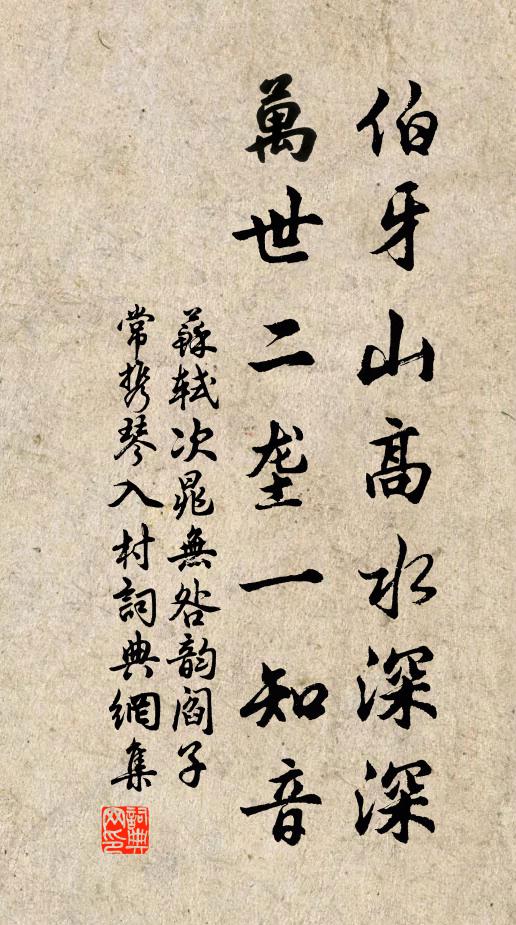 伯牙山高水深深
萬世二垄一知音
蘇軾次晁無咎韵閻子
常携琴入村詞典網集
詞典网印